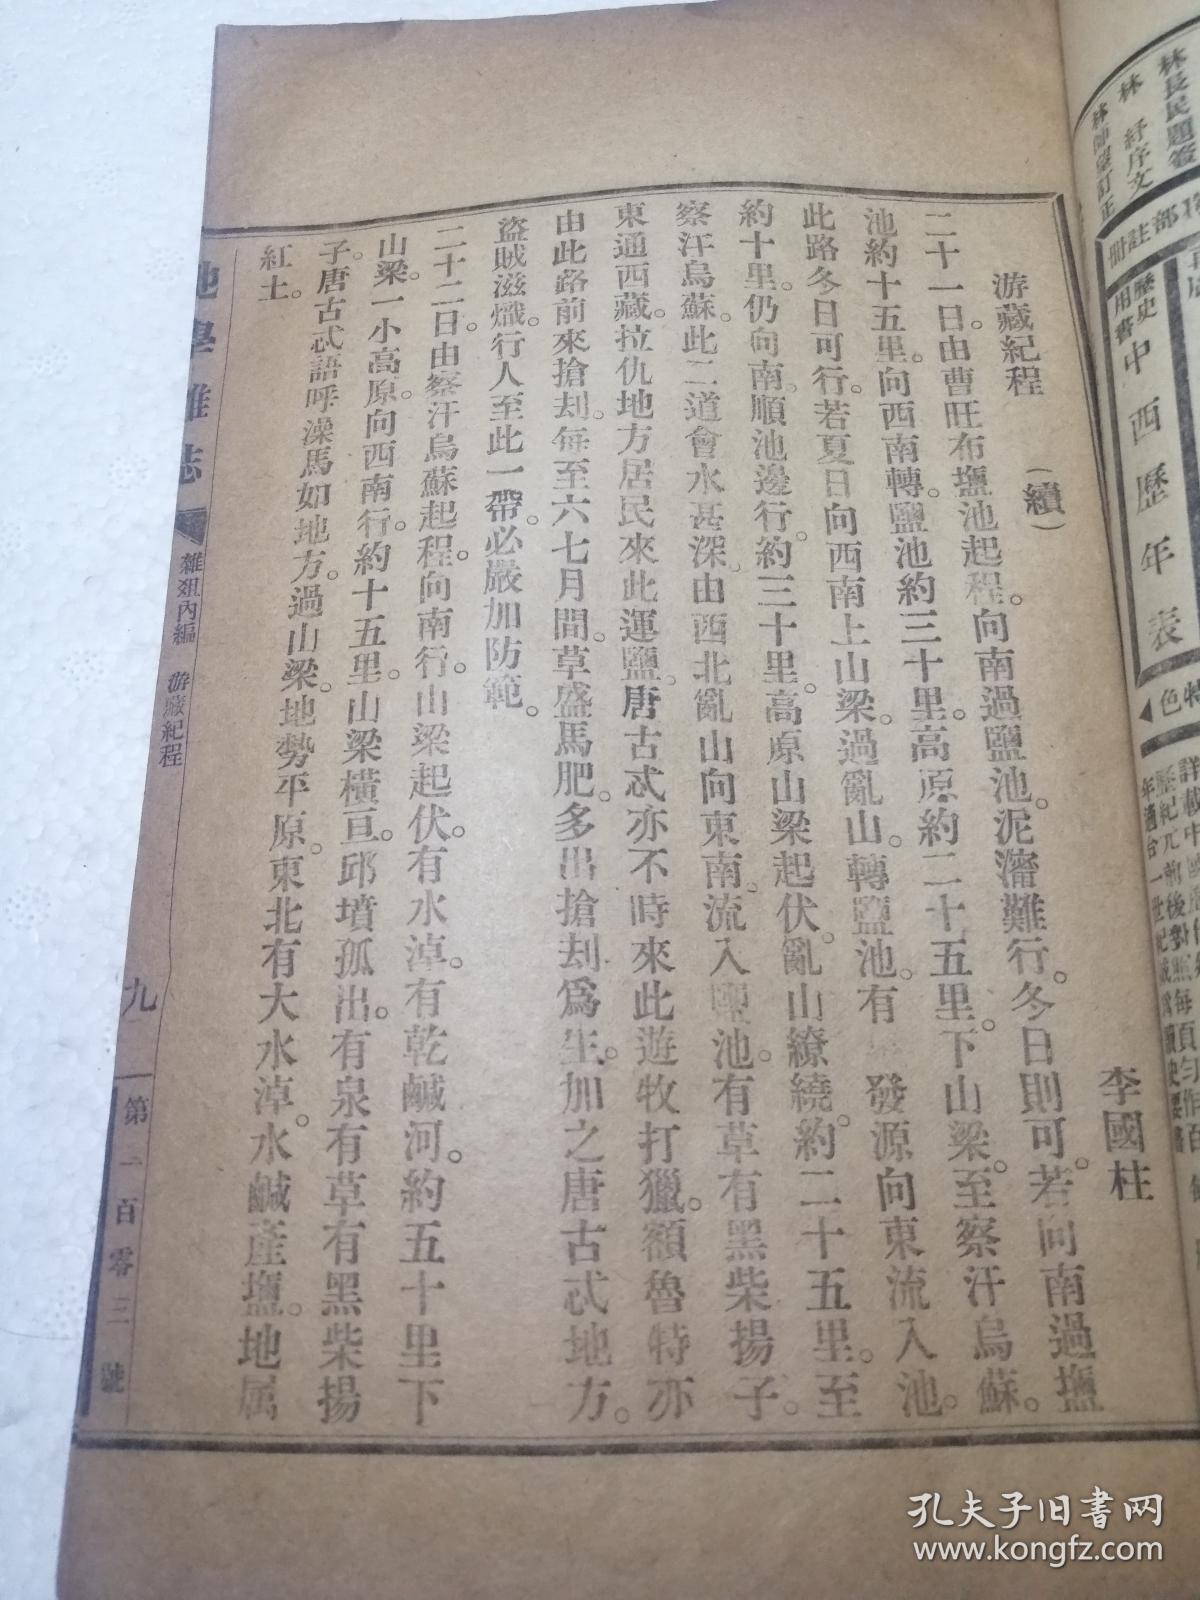 林長民題簽
林紓序文
歷史
用書
中西歷年表
特色
游藏紀程
（續）
李國柱
二十一日。由曹旺布鹽池起程。向南過鹽池。泥濘難行。冬日則可。若向南過鹽
池約十五里。向西南轉。鹽池約三十里。高原約二十五里。下山梁。至察汗烏蘇。
此路冬日可行。若夏日向西南上山梁。過亂山。轉鹽池。有 發源向東流入池。
約十里。仍向南。順池邊行。約三十里。高原山梁起伏。亂山繚繞。約二十五里。至
察汗烏蘇。此二道會水甚深。由西北亂山向東南。流入鹽池。有草有黑柴揚子。
東通西藏。拉仇地方居民來此運鹽。唐古忒亦不時來此遊牧打獵。額魯特亦
由此路前來搶刦。每至六七月間。草盛馬肥。多出搶刦爲生。加之唐古忒地方。
盜賊滋熾。行人至此一帶。必嚴加防範。
二十二日。由察汗烏蘇起程。向南行。山梁起伏。有水淖。有乾鹹河。約五十里下
山梁。一小高原。向西南行。約十五里。山梁橫亘。邱墳孤出。有泉有草有黑柴揚
子。唐古忒語呼澡馬如地方。過山梁。地勢平原。東北有大水淖。水鹹產鹽。地属
紅土。
地學雜誌
雜俎內編 游藏紀程
九
第一百零三號
孔夫子旧书网
www.kongfz.com